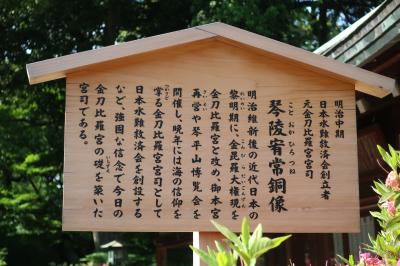 明治中期
日本水難救済会創立者
元金刀比羅宮宮司
琴陵宥常銅像
こと おか ひろ つね
明治維新後の近代日本の
黎明期に、金毘羅大権現を
れいめい
こんぴらだいごんげん
金刀比羅宮と改め、御本宮
再営や琴平山博覧会を
さいえい
開催し、晩年には海の信仰を
掌る金刀比羅宮宮司として
日本水難救済会を創設する
など、強固な信念で今日の
金刀比羅宮の礎を築いた
いしずえ
宮司である。